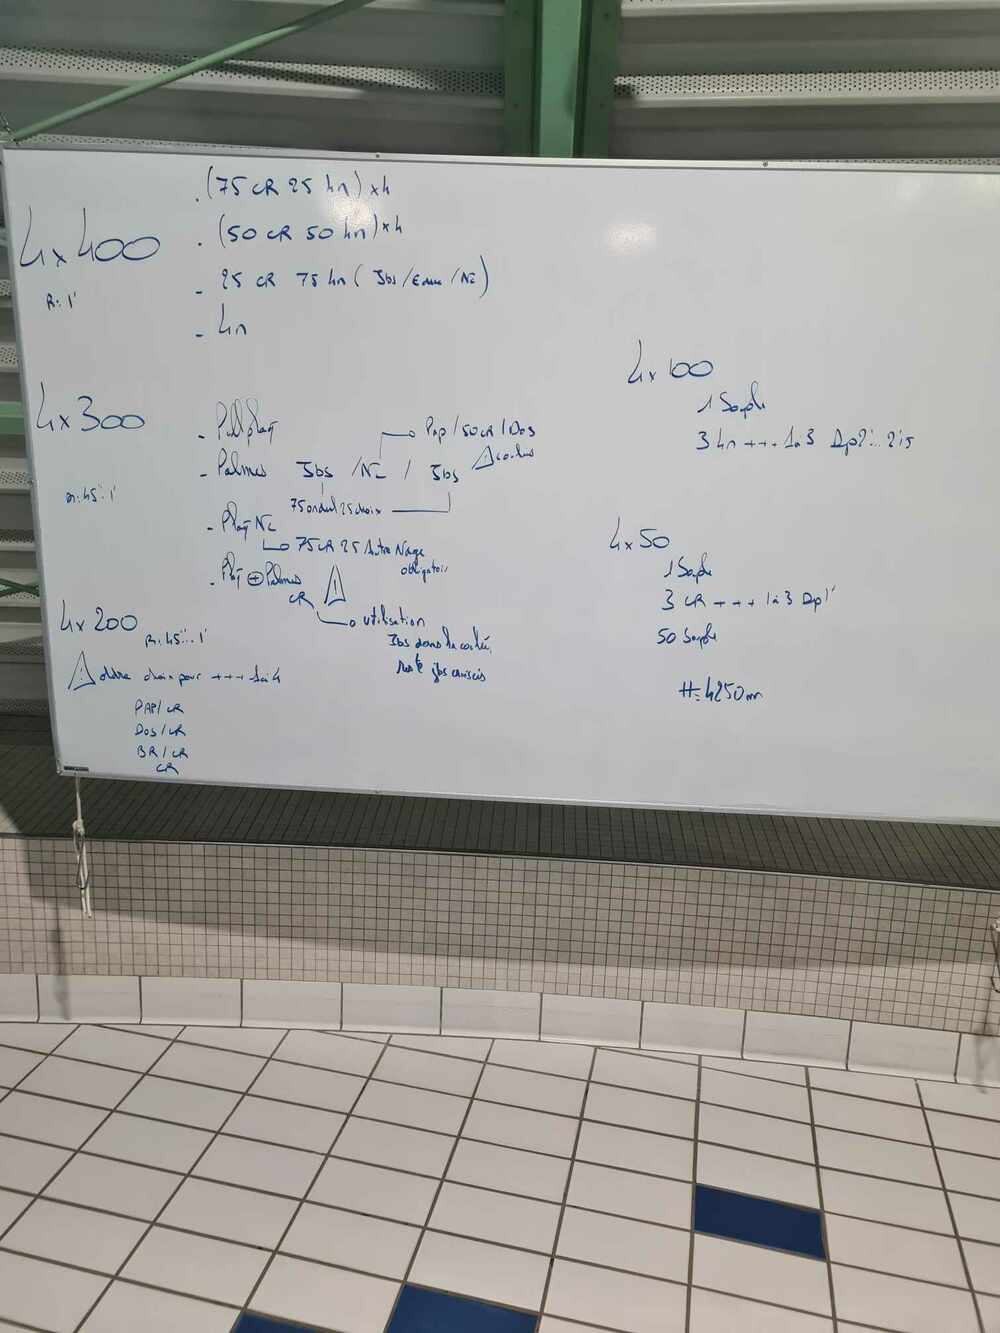 4x400
R: 1'
. (75 CR 25 4n) x4
. (50 CR 50 4n) x4
- 25 CR 75 4n ( Jbs/Educ/NC)
- 4n
4x300
R: 45''. 1'
- Pull plaq
- Palmes Jbs /NC / Jbs
Pap/50CR/Dos
⚠ coulées
75 ondul 25 choix
- Plaq NC
75 CR 25 Autre Nage
obligatoire
- Plaq + Palmes
CR
⚠ utilisation
Jbs dans la coulée,
reste jbs croisés
4x200
R: 45''... 1'
⚠ ordre choix pour +++ 1 à 4
PAP/CR
Dos/CR
BR/CR
CR
4x100
1 Souple
3 4n +++ 1 à 3 Dp 2'... 2'15
4x50
1 Souple
3 CR +++ 1 à 3 Dp 1'
50 Souple
#= 4250m